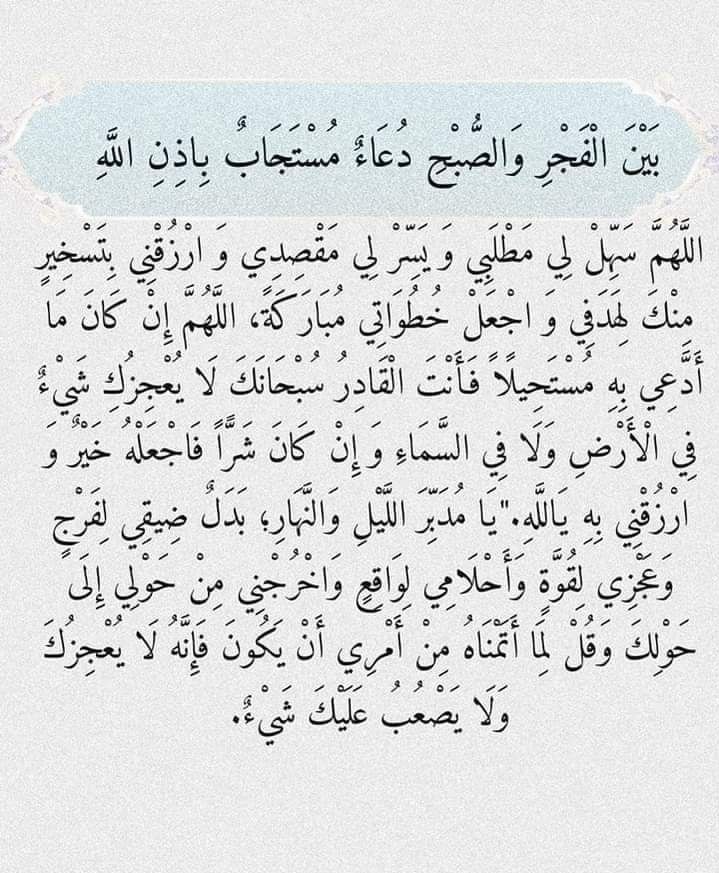 بَيْنَ الْفَجْرِ وَالصُّبْحِ دُعَاءٌ مُسْتَجَابٌ بِاِذِنِ اللَّهِ
اللَّهُمَّ سَهِّلْ لِي مَطْلَبِي وَ يَسِّرْ لِي مَقْصِدِي وَ ارْزُقْنِي بِتَسْخِيرٍ
مِنْكَ لِهَدَفِي وَ اجْعَلْ خُطُوَاتِي مُبَارَكَةً، اللَّهُمَّ إِنْ كَانَ مَا
أَدَّعِي بِهِ مُسْتَحِيلًاً فَأَنْتَ الْقَادِرُ سُبْحَانَكَ لَا يُعْجِزُكِ شَيْءٌ
فِي الْأَرْضِ وَلَا فِي السَّمَاءِ وَ إِنْ كَانَ شَرًّاً فَاجْعَلْهُ خَيْرٌ وَ
ارْزُقْنِي بِهِ يَاللَّهِ."يَا مُدَبِّرَ اللَّيْلِ وَالنَّهَارِ؛ بَدَلٌ ضِيقِي لِفَرْجٍ
وَعَجْزِي لِقُوَّةٍ وَأَحْلَامِي لِوَاقِعٍ وَاخْرُجْنِي مِنْ حَوْلِي إِلَى
حَوْلِكَ وَقُلْ لِمَا أَتَمْنَاهُ مِنْ أَمْرِي أَنْ يَكُونَ فَإِنَّهُ لَا يُعْجِزُكَ
وَلَا يَصْعُبُ عَلَيْكَ شَيْءٌ.